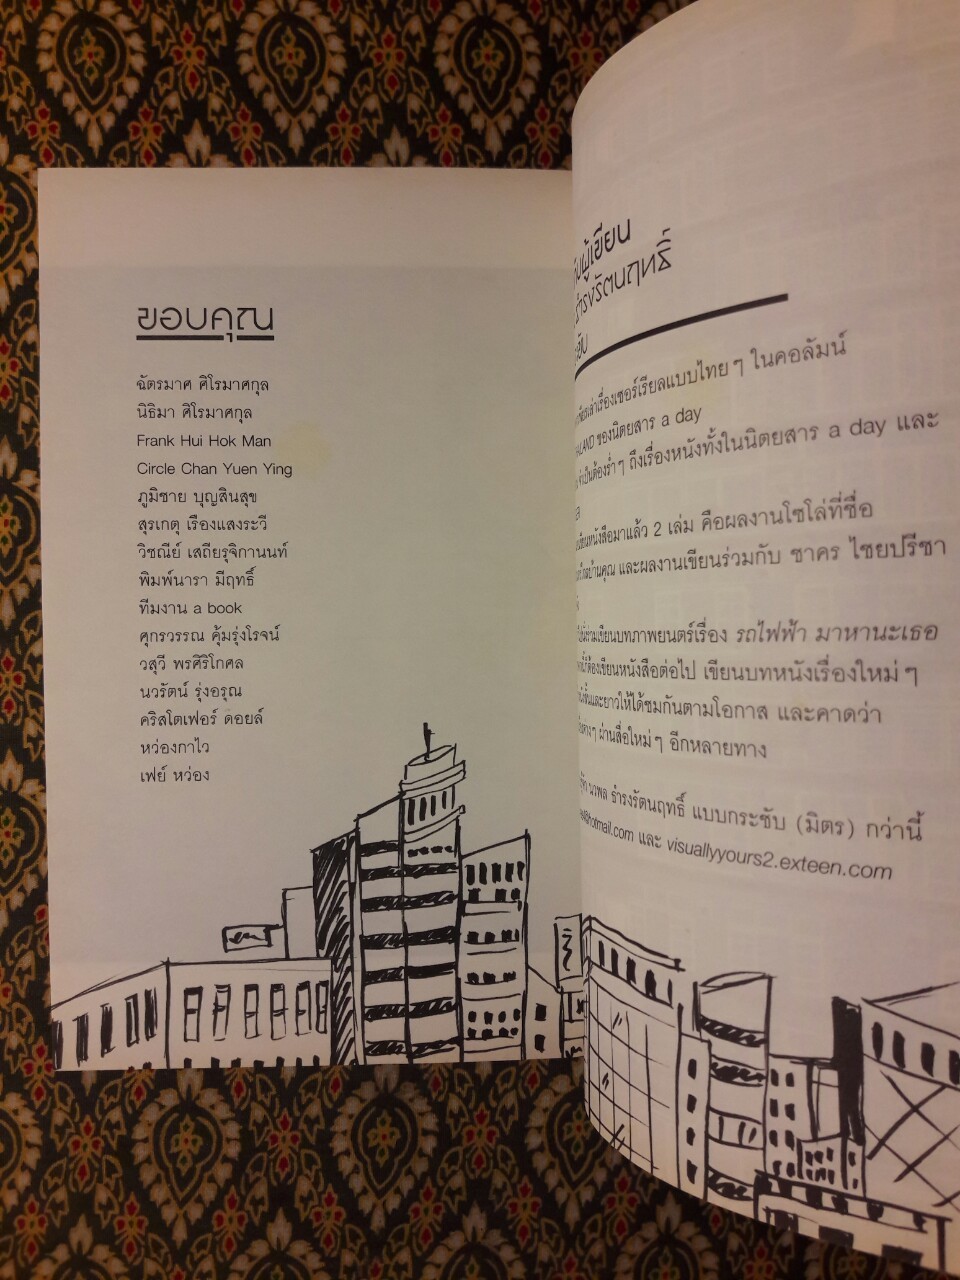 ขอบคุณ
ฉัตรมาศ ศิโรมาศกุล
นิธิมา ศิโรมาศกุล
Frank Hui Hok Man
Circle Chan Yuen Ying
ภูมิชาย บุญสินสุข
สุรเกตุ เรืองแสงระวี
วิชณีย์ เสถียรุจิกานนท์
พิมพ์นารา มีฤทธิ์
ทีมงาน a book
ศุกรวรรณ คุ้มรุ่งโรจน์
วสุวี พรศิริโกศล
นวรัตน์ รุ่งอรุณ
คริสโตเฟอร์ ดอยล์
หว่องกาไว
เฟย์ หว่อง
ผู้เขียน
ธำรงรัตนฤทธิ์
เล่าเรื่องเซอร์เรียลแบบไทยๆ ในคอลัมน์
ของนิตยสาร a day
จำเป็นต้องร่ำๆ ถึงเรื่องหนังทั้งในนิตยสาร a day และ
เขียนหนังสือมาแล้ว 2 เล่ม คือผลงานโซโล่ที่ชื่อ
บ้านคุณ และผลงานเขียนร่วมกับ ชาคร ไชยปรีชา
ร่วมเขียนบทภาพยนตร์เรื่อง รถไฟฟ้า มาหานะเธอ
ต้องเขียนหนังสือต่อไป เขียนบทหนังเรื่องใหม่ๆ
สั้นและยาวให้ได้ชมกันตามโอกาส และคาดว่า
ต่างๆ ผ่านสื่อใหม่ๆ อีกหลายทาง
นวพล ธำรงรัตนฤทธิ์ แบบกระชับ (มิตร) กว่านี้
hotmail.com และ visuallyyours2.exteen.com